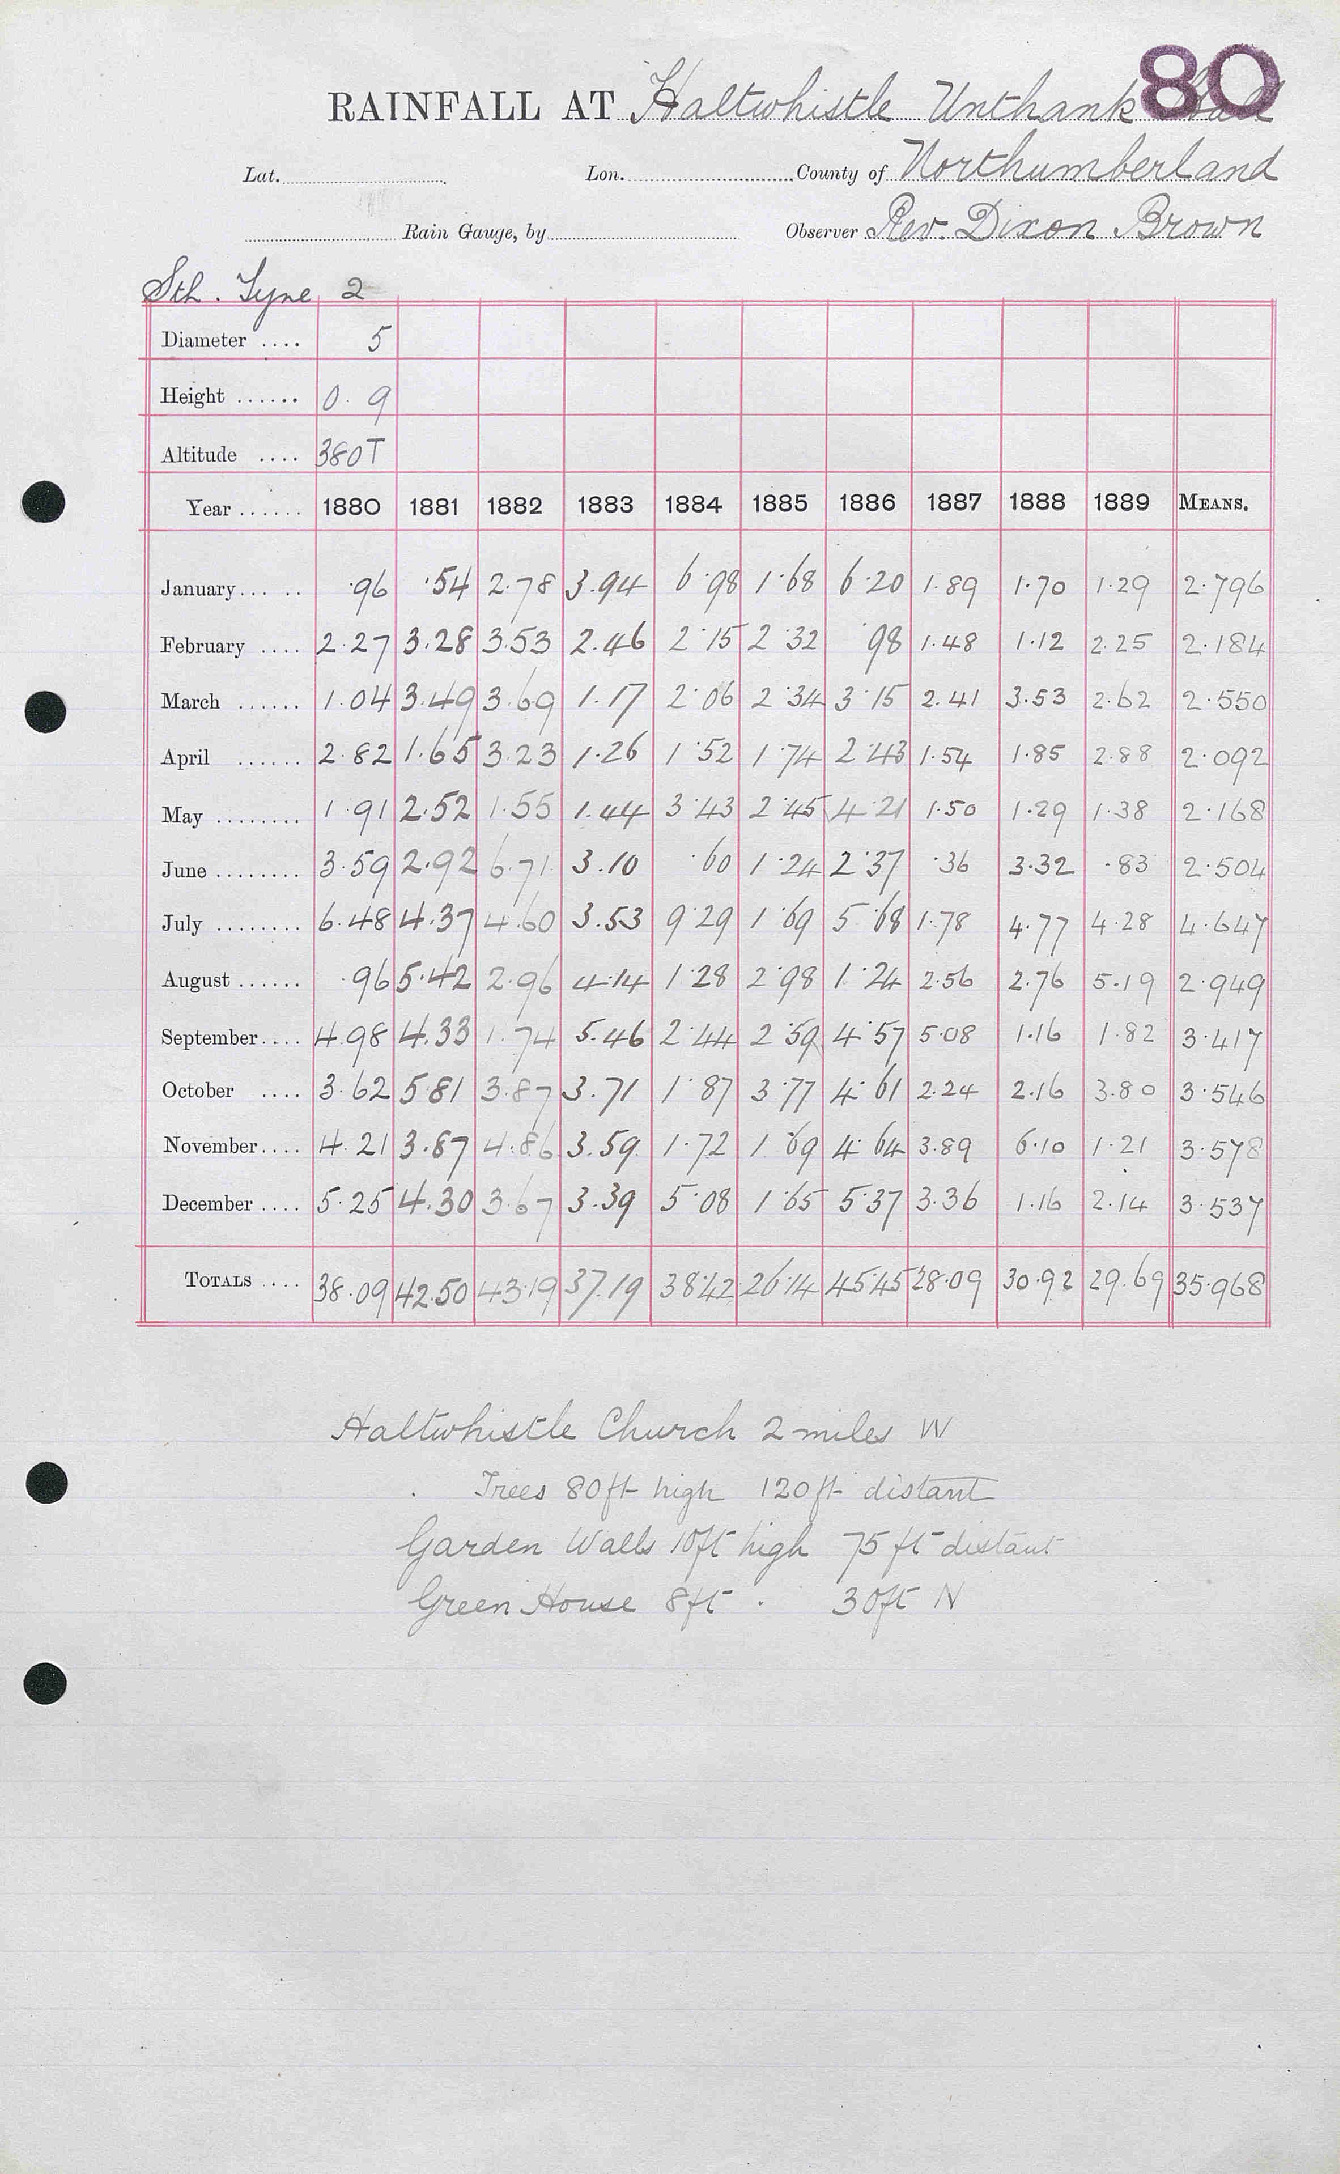 80
RAINFALL AT Haltwhistle Unthank Hall
Lat. Lon. County of Northumberland
Rain Gauge, by Observer Rev. Dixon Brown
Sth. Tyne 2
Diameter .... 5
Height ...... 0. 9
Altitude .... 380T
Year ...... 1880 1881 1882 1883 1884 1885 1886 1887 1888 1889 MEANS.
January... .. ·96 ·54 2.78 3.94 6·98 1·68 6·20 1.89 1.70 1.29 2.796
February .... 2.27 3.28 3.53 2.46 2·15 2·32 98 1.48 1.12 2.25 2.184
March ...... 1.04 3.49 3.69 1.17 2·06 2·34 3·15 2.41 3.53 2.62 2.550
April ...... 2.82 1.65 3.23 1.26 1·52 1·74 2·43 1.54 1.85 2.88 2.092
May ........ 1.91 2.52 1.55 1.44 3·43 2·45 4·21 1.50 1.29 1.38 2.168
June ........ 3.59 2.92 6.71 3.10 ·60 1·24 2·37 ·36 3.32 ·83 2.504
July ........ 6.48 4.37 4.60 3.53 9·29 1·69 5·68 1.78 4.77 4.28 4.647
August ...... ·96 5.42 2.96 4.14 1·28 2·98 1·24 2.56 2.76 5.19 2.949
September.... 4.98 4.33 1.74 5.46 2·44 2·59 4·57 5.08 1.16 1.82 3.417
October .... 3.62 5.81 3.87 3.71 1·87 3·77 4·61 2.24 2.16 3.80 3.546
November.... 4.21 3.87 4.86 3.59 1·72 1·69 4·64 3.89 6.10 1.21 3.578
December .... 5.25 4.30 3.67 3.39 5·08 1·65 5·37 3.36 1.16 2.14 3.537
TOTALS .... 38.09 42.50 43.19 37.19 38·42 26·14 45·45 28.09 30.92 29.69 35.968
Haltwhistle Church 2 miles W
Trees 80ft high 120ft distant
Garden Walls 10ft high 75 ft distant
Green House 8ft . 30ft N